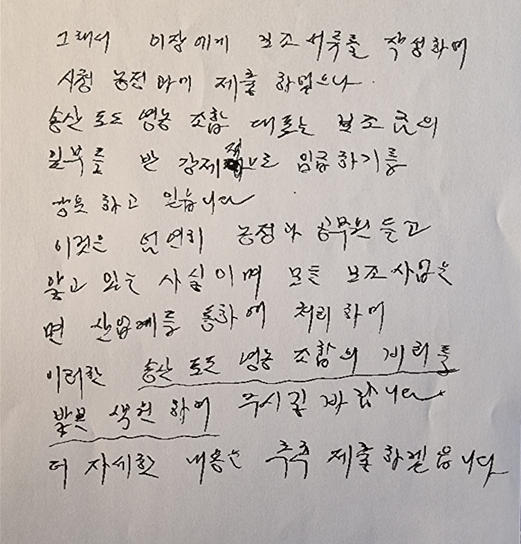 그래서 이장에게 보조서류를 작성하여
시청 농정과에 제출 하였으나
송산 포도 영농 조합 대표는 보조금의
일부를 반 강제적으로 입금하기를
하고 있습니다
이것은 엄연히 농정과 공무원들도
알고 있는 사실이며 모든 보조사업은
면 산업계를 통하여 처리하며
이러한 송산 포도 영농 조합의 비리를
발본 색원 하여 주시길 바랍니다
더 자세한 내용은 추후 제출 하겠습니다